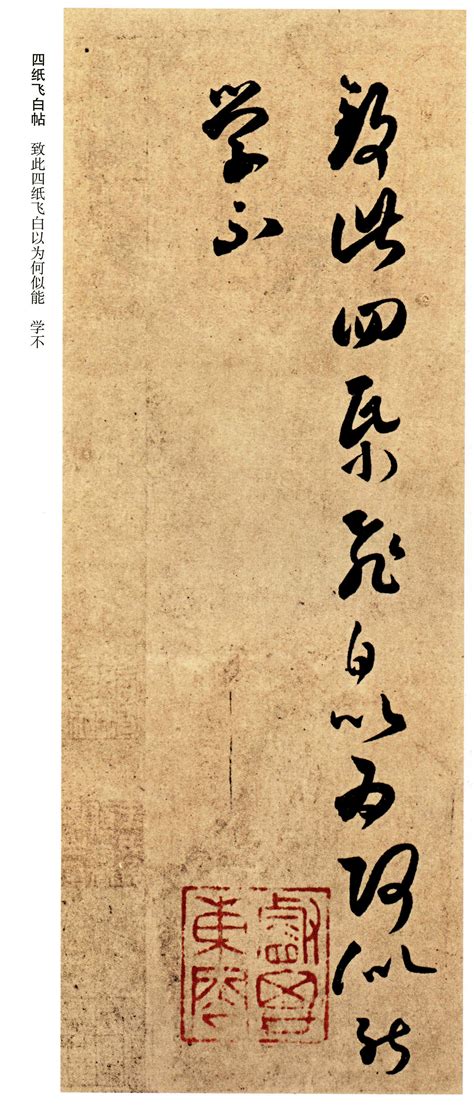 致此四帋飛白以为何似能
学不
睿思
東閣
四纸飞白帖 致此四纸飞白以为何似能 学不